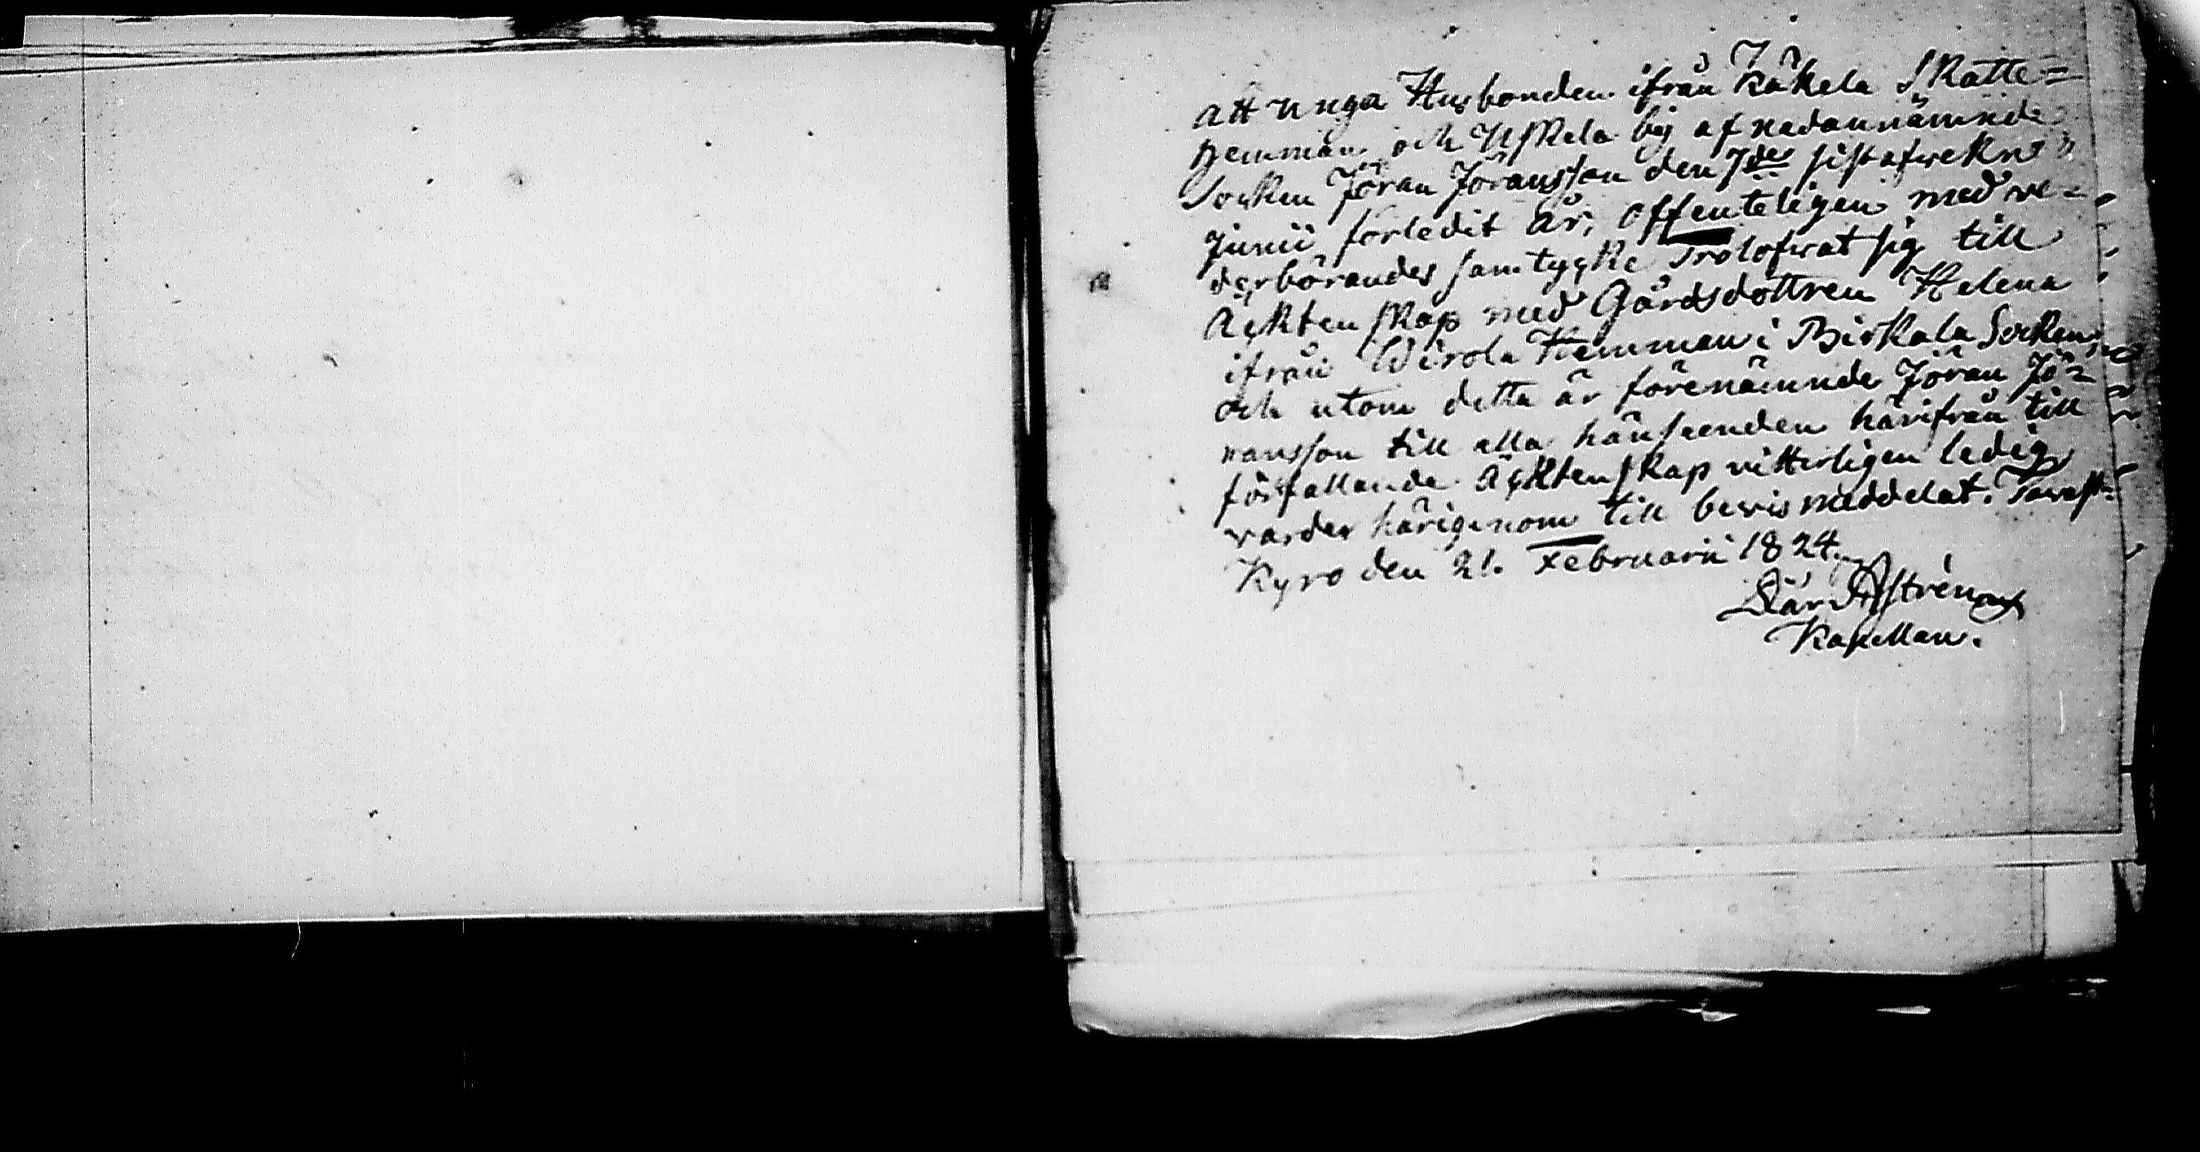 Att unga Husbonden ifrån Käkelä Skatte=
hemman och Uskela by af nedannämnde
Socken Jöran Jöransson den 7de sistafwekne
Junii förledit år, offenteligen med we=
derbörandes samtygke Trolofwat sig till
Ägktenskap med Gårdsdottren Helena
ifrån Wirola Hemman i Birkala Socken,
och utom detta är förenämnde Jöran Jö=
ransson till alla hänseenden härifrån till
förfallande Ägktenskap vitterligen ledig
warder härigenom till bevis meddelat. Tavast=
Kyro den 21. Februarii 1824.
Kapellan.